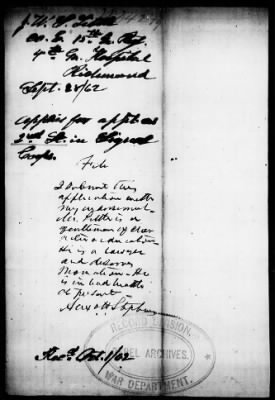 J. W. S.
Co. E. 15th Ga. Reg.
4th Ga. Hospital
Richmond
Sept. 28/62
Applies for appt. as
2nd Lt. in Signal
Corps.
File
I submit this
application with
my endorsement
Mr. is a
gentleman of char
acter & education
He is a lawyer
and deserves
promotion. He
is in bad health
at present
Alex H Stephens
Recd. Oct. 1/62
RECORD DIVISION
REBEL ARCHIVES.
WAR DEPARTMENT.